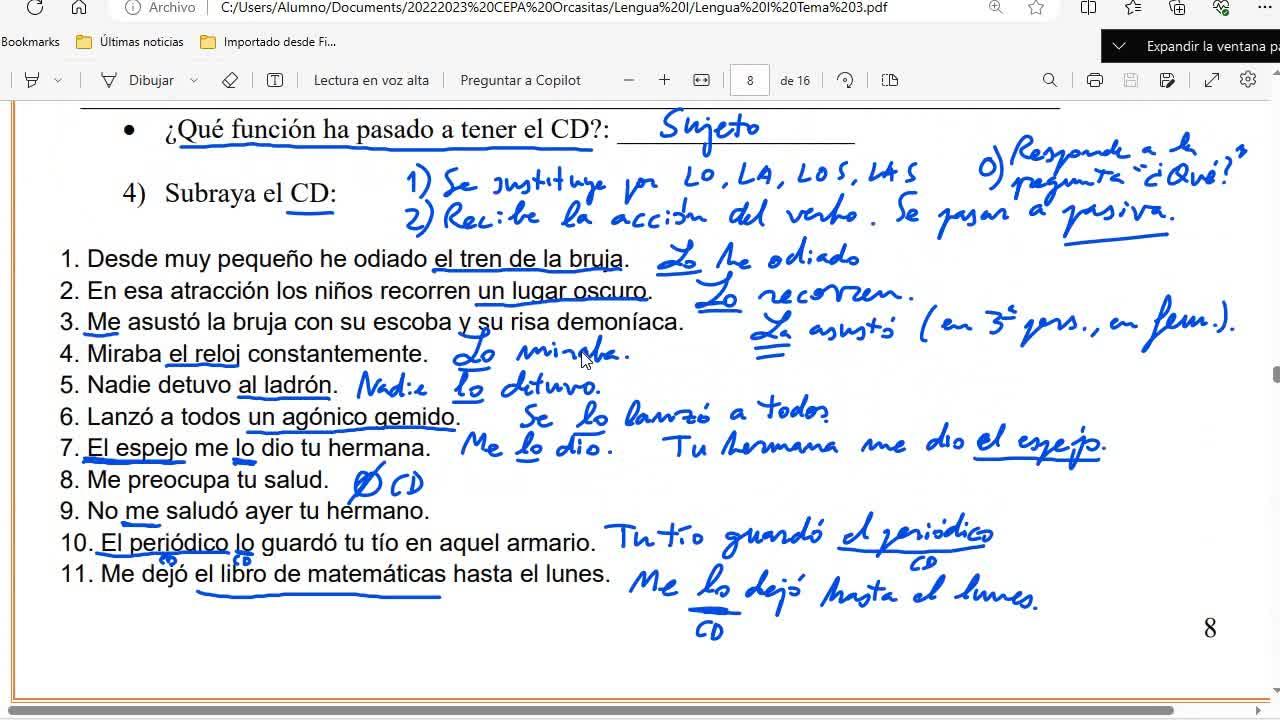 Archivo C:/Users/Alumno/Documents/20222023%20CEPA%20Orcasitas/Lengua%20I/Lengua%20I%20Tema%203.pdf
Bookmarks Últimas noticias Importado desde Fi...
Expandir la ventana pa
Dibujar Lectura en voz alta Preguntar a Copilot 8 de 16
• ¿Qué función ha pasado a tener el CD?: Sujeto
0) Responde a la pregunta "¿Qué?"
4) Subraya el CD:
1) Se sustituye por LO, LA, LOS, LAS
2) Recibe la acción del verbo. Se pasar a pasiva.
1. Desde muy pequeño he odiado el tren de la bruja. Lo he odiado
2. En esa atracción los niños recorren un lugar oscuro. Lo recorren.
3. Me asustó la bruja con su escoba y su risa demoníaca. La asustó (en 3ª pers., en fem.).
4. Miraba el reloj constantemente. Lo miraba.
5. Nadie detuvo al ladrón. Nadie lo detuvo.
6. Lanzó a todos un agónico gemido. Se lo lanzó a todos
7. El espejo me lo dio tu hermana. Me lo dio. Tu hermana me dio el espejo.
8. Me preocupa tu salud. Ø CD
9. No me saludó ayer tu hermano.
10. El periódico lo guardó tu tío en aquel armario. Tu tío guardó el periódico
CD CD CD
11. Me dejó el libro de matemáticas hasta el lunes. Me lo dejó hasta el lunes.
CD
8